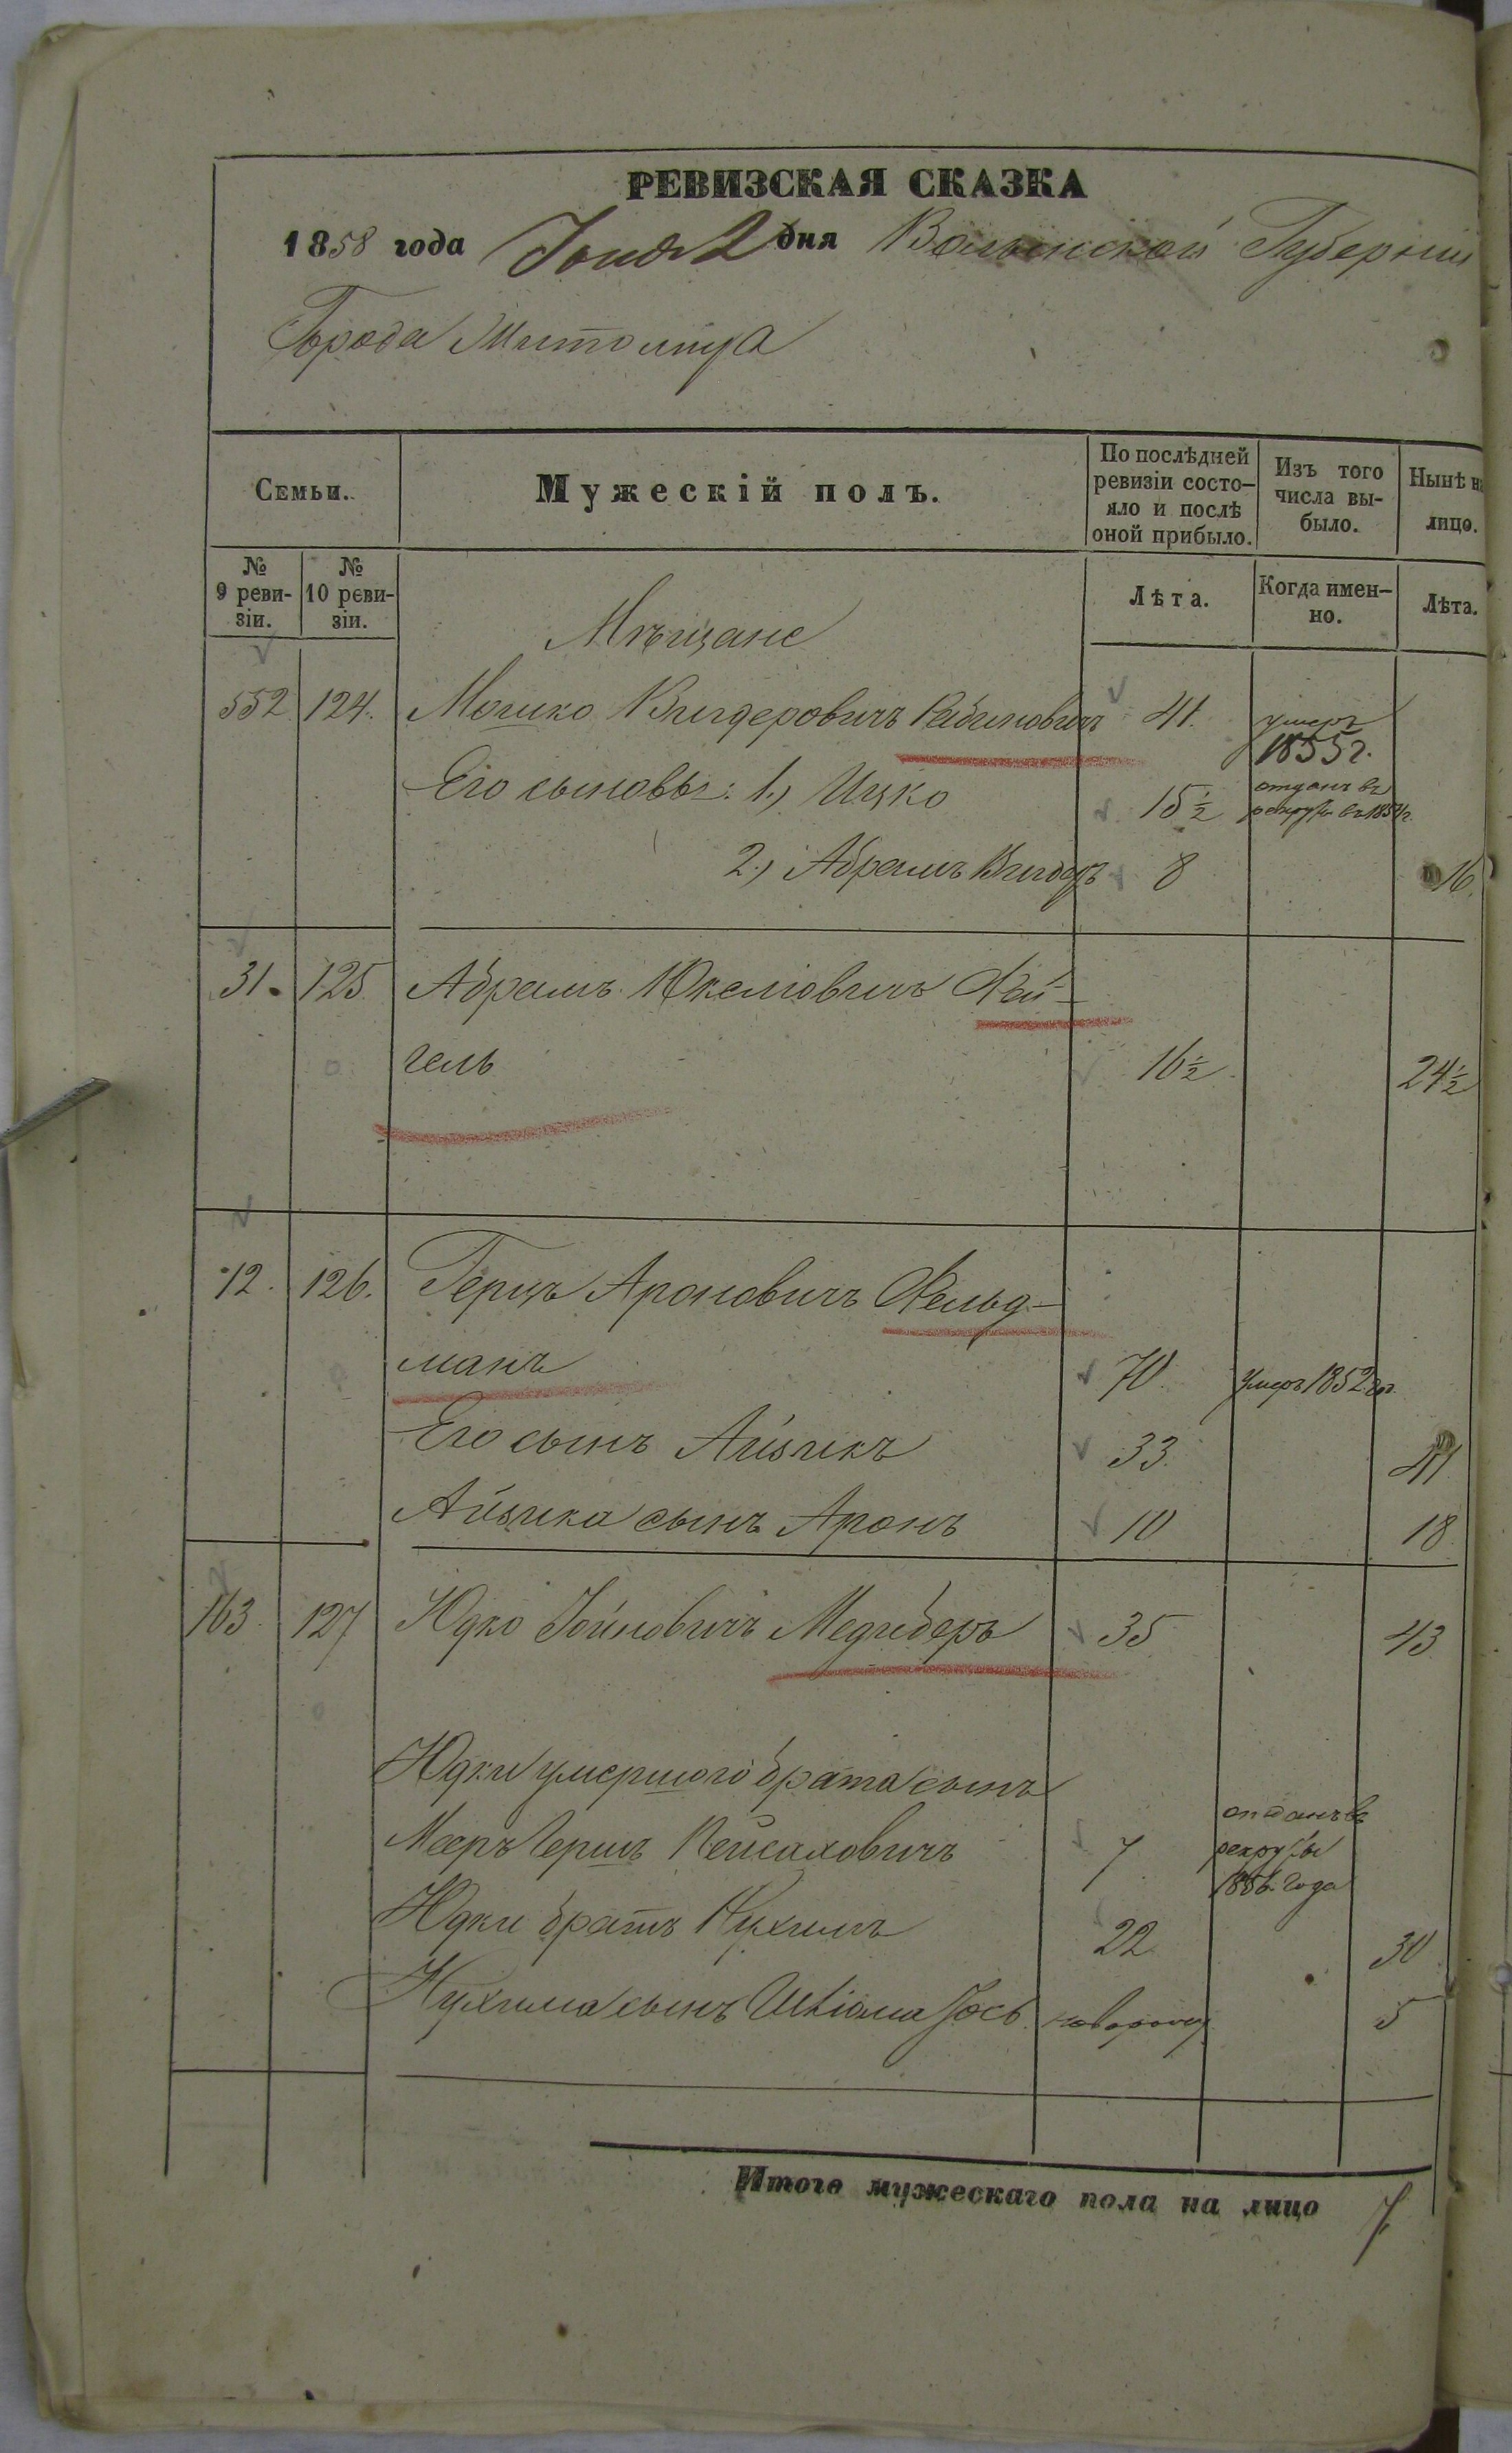 РЕВИЗСКАЯ СКАЗКА
1858 года Іюня 2 дня Волынской Губерніи
Города Житомира
Семьи. Мужескій полъ. По послѣдней ревизіи состо- Изъ того Нынѣ на
яло и послѣ оной прибыло. числа вы- было. лицо.
№ 9 реви- зіи. № 10 реви- зіи. Лѣта. Когда имен- но. Лѣта.
Мѣщане
552 124. Мошко Вигдеровичъ Рабиновичъ 41. умеръ 1855 г.
Его сыновья: 1.) Ицко 15½ отданъ въ рекруты въ 1854 г.
2.) Абрамъ Вигдеръ 8 16.
31. 125 Абрамъ Юкелiовичъ Фей-
гель 16½ 24½
12. 126. Герцъ Ароновичъ Фельд-
манъ 70 умеръ 1852 го.
Его сынъ Айзикъ 33. 41
Айзика сынъ Аронъ 10 18
163. 127 Юдко Іойновичъ Меджберъ 35 43
Юдки умершого брата сынъ
Мееръ Гершъ Пейсаховичъ 7 отданъ въ рекруты 1856 года
Юдки братъ Нухимъ 22 30
Нухима сынъ Іось новорожд. 5
Итого мужескаго пола на лицо 7